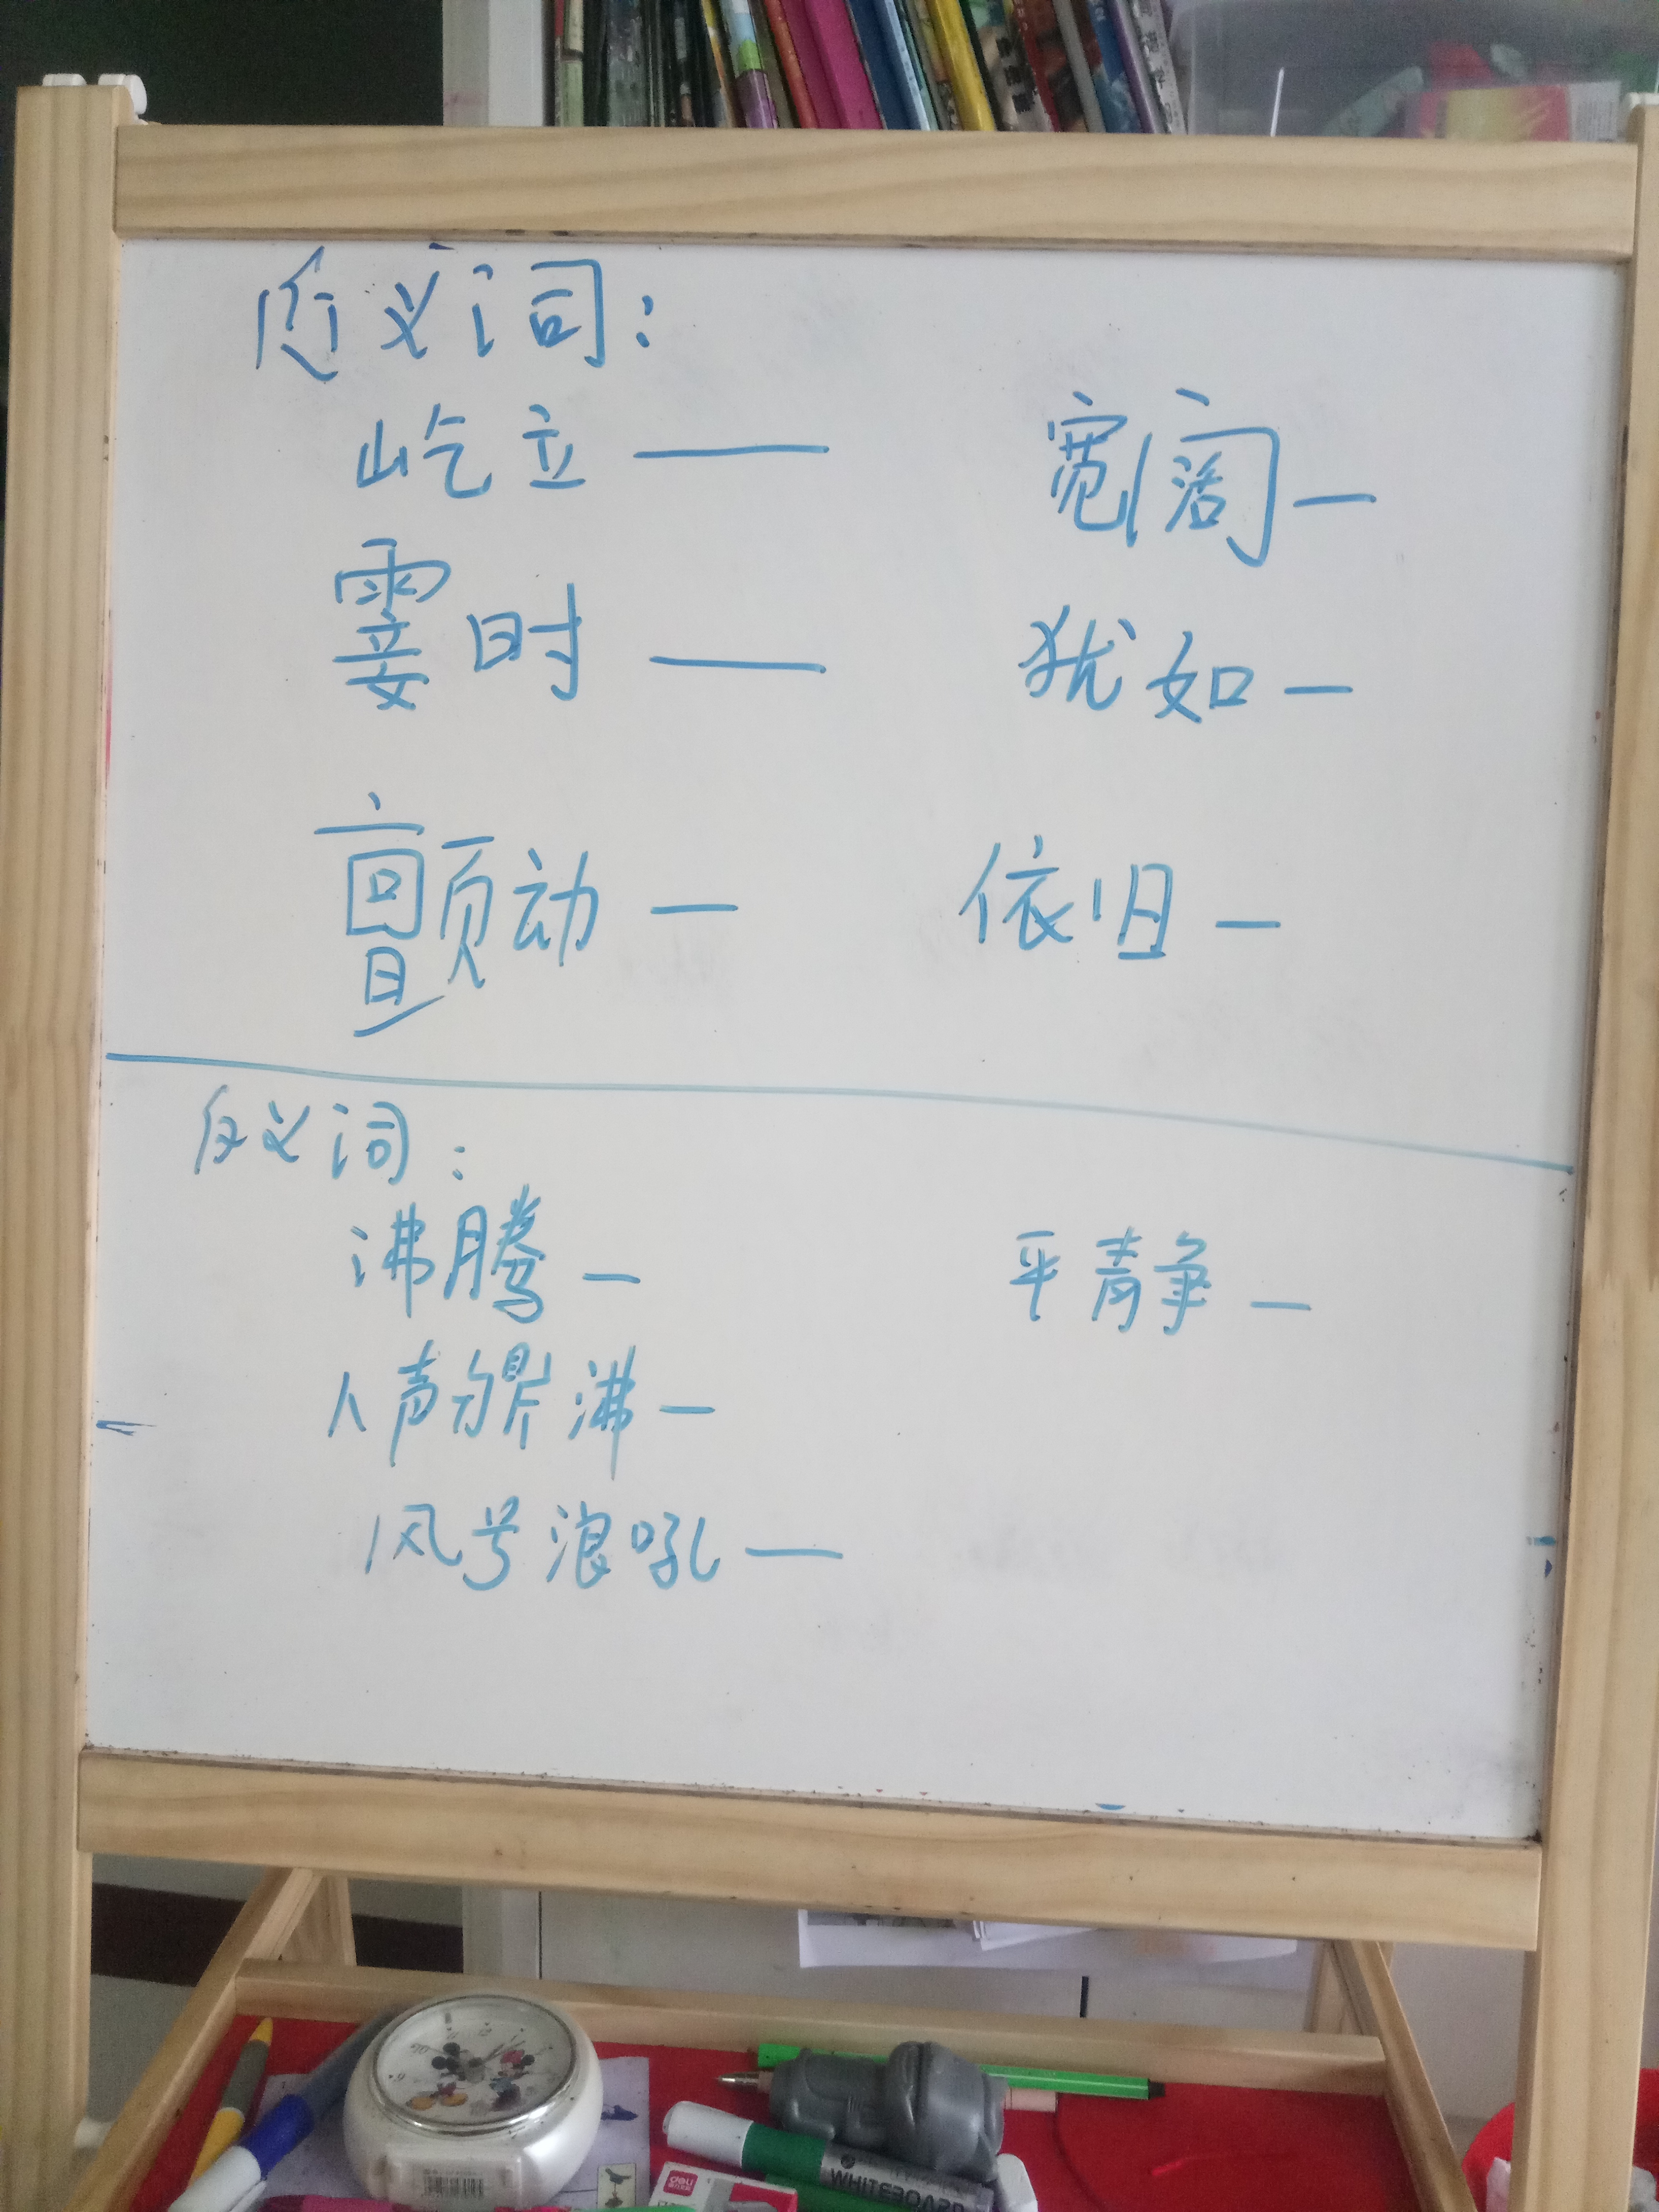 近义词：
屹立—— 宽阔—
霎时—— 犹如—
颤动— 依旧—
反义词：
沸腾— 平静—
人声鼎沸—
风号浪吼——
deli
WHITEBOARD